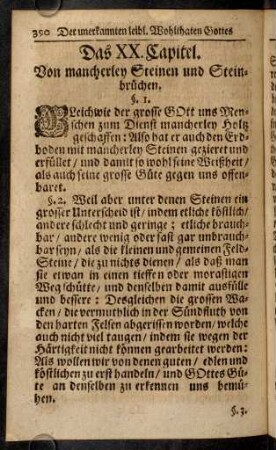 350 Der unerkannten leibl. Wohlthaten Gottes
Das XX. Capitel.
Von mancherley Steinen und Stein-
brüchen.
§. 1.
GLeichwie der grosse GOtt uns Men-
schen zum Dienst mancherley Holtz
geschaffen: Also hat er auch den Erd-
boden mit mancherley Steinen gezieret und
erfüllet / und damit so wohl seine Weißheit /
als auch seine grosse Güte gegen uns offen-
baret.
§. 2. Weil aber unter denen Steinen ein
grosser Unterscheid ist / indem etliche köstlich /
andere schlecht und geringe; etliche brauch-
bar / andere wenig oder fast gar unbrauch-
bar seyn / als die kleinen und gemeinen Feld-
Steine / die zu nichts dienen / als daß man
sie etwan in einen tieffen oder morastigen
Weg schütte / und denselben damit ausfülle
und bessere: Desgleichen die grossen Wa-
cken / die vermuthlich in der Sündfluth von
den harten Felsen abgerissen worden / welche
auch nicht viel taugen / indem sie wegen der
Härtigkeit nicht können gearbeitet werden:
Als wollen wir von denen guten / edlen und
köstlichen zu erst handeln / und GOttes Gü-
te an denselben zu erkennen uns bemü-
hen.
§. 3.